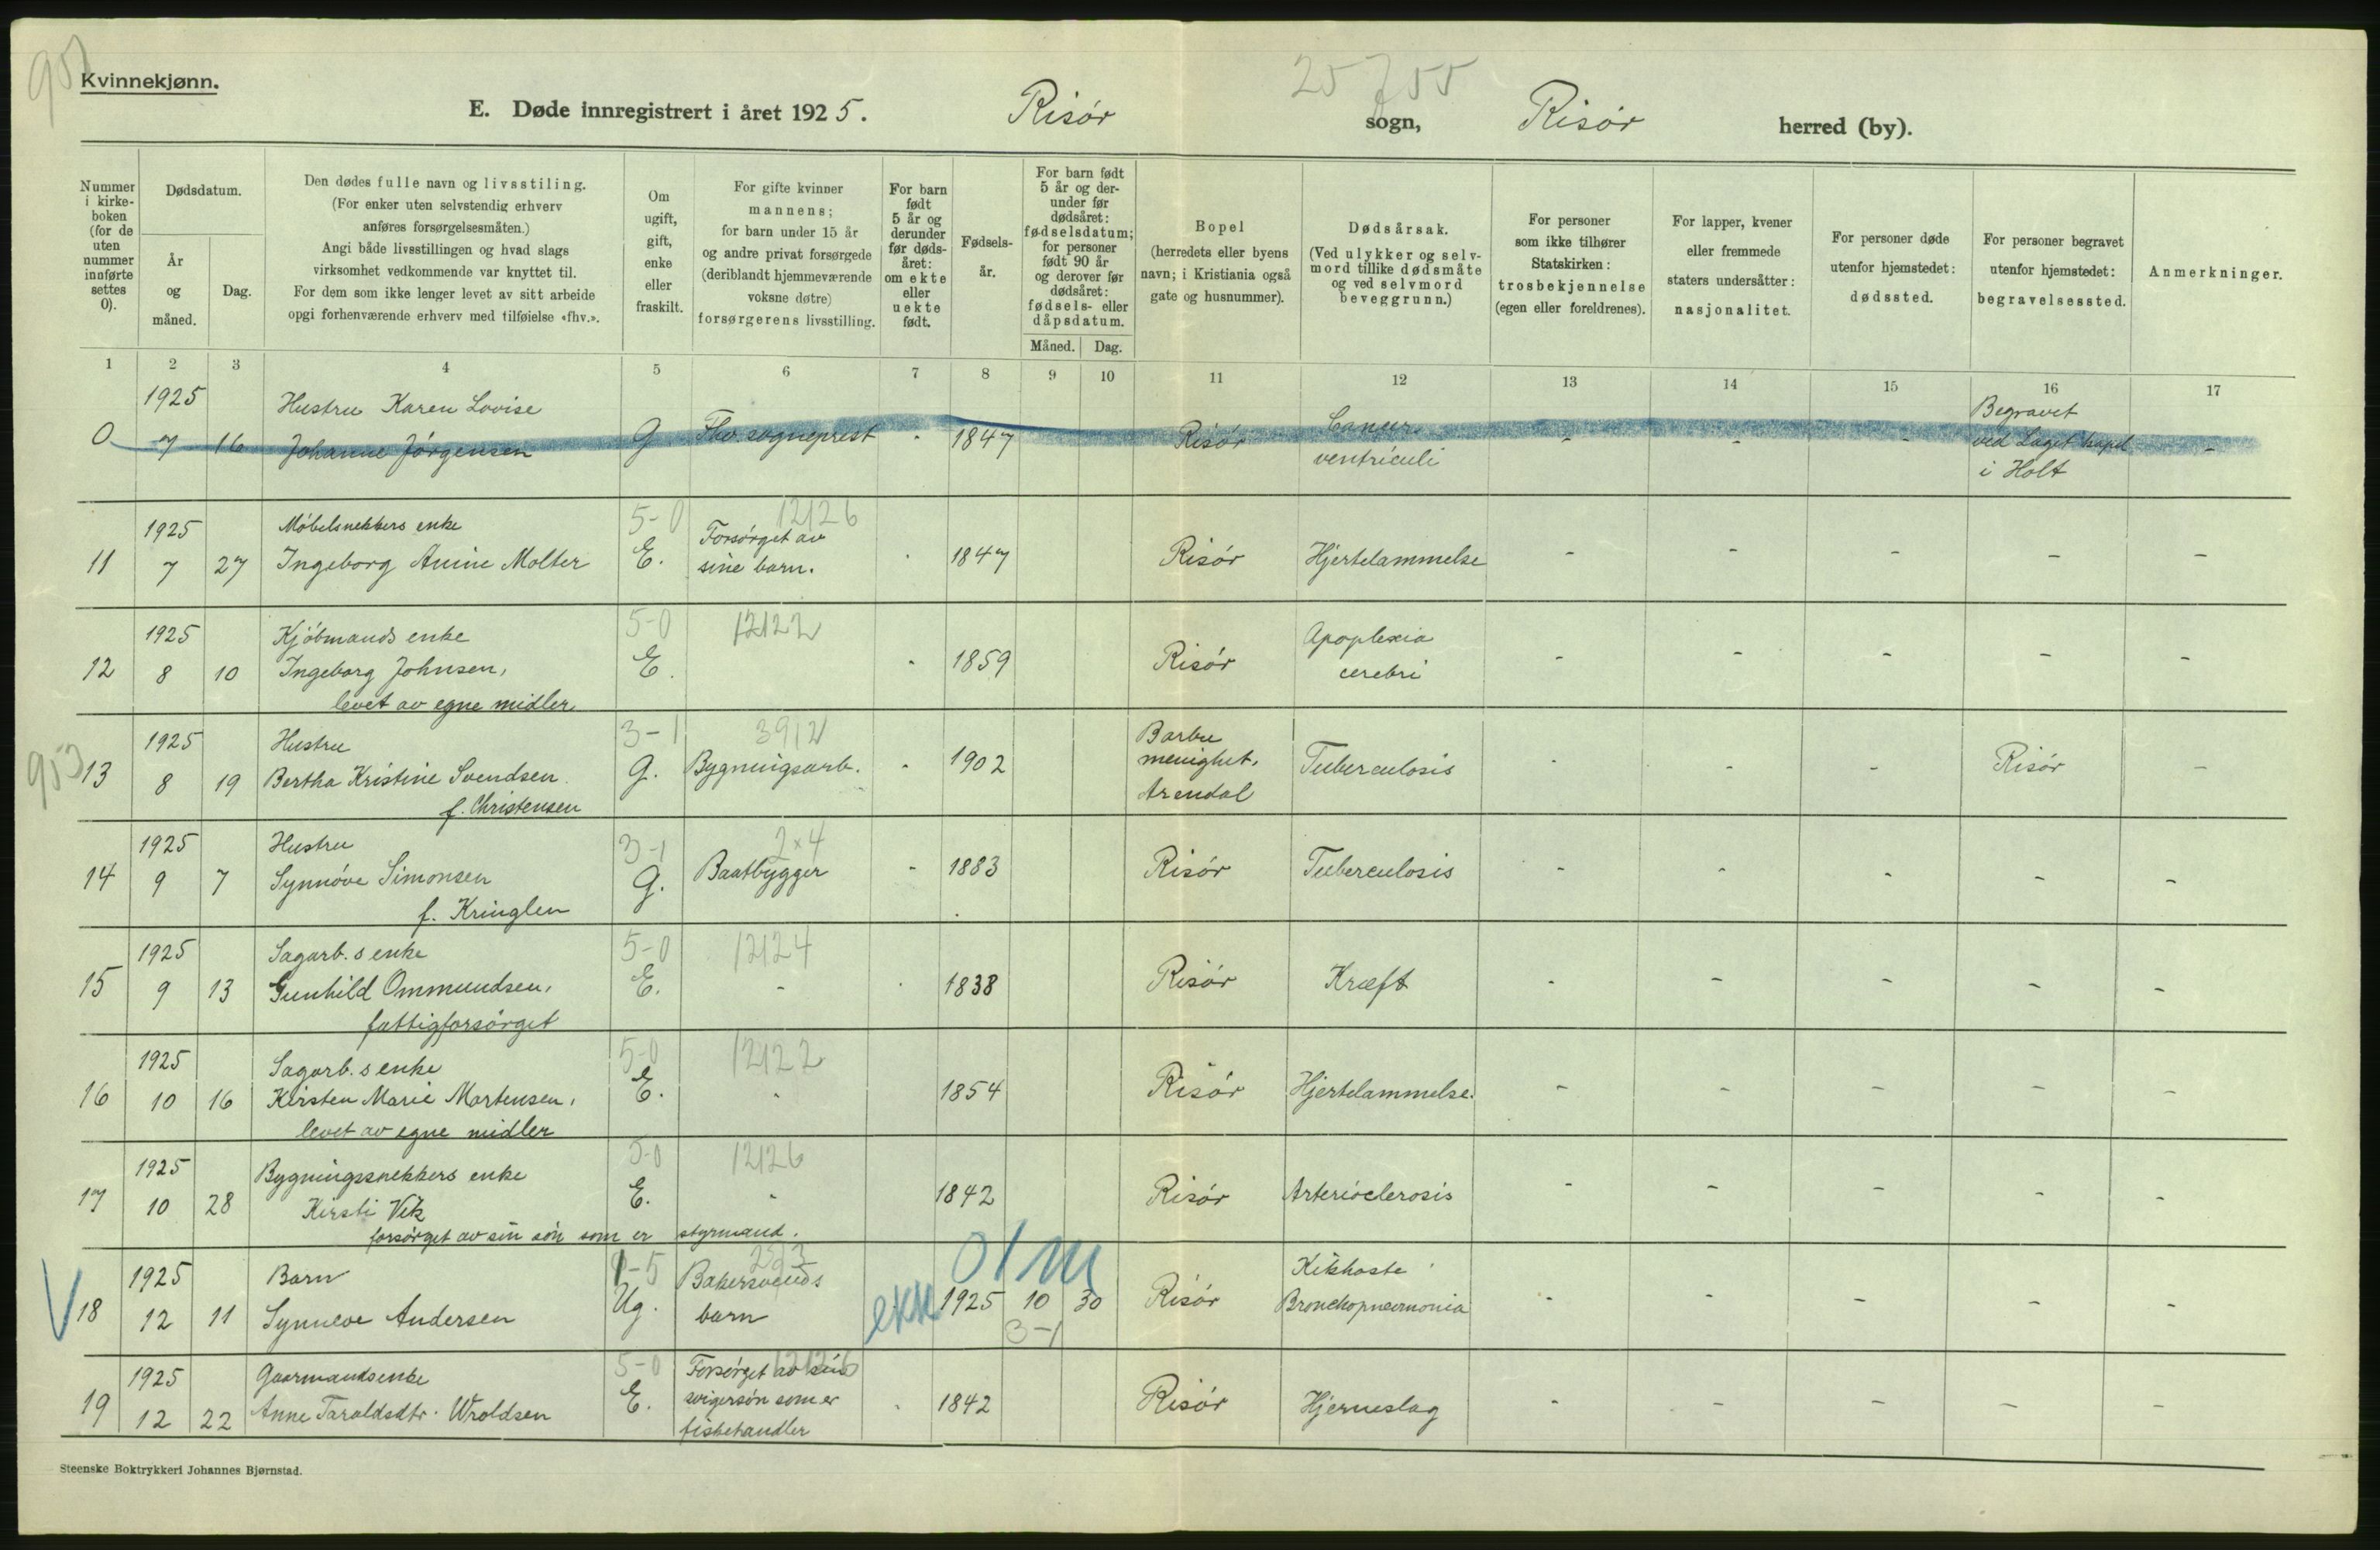 Kvinnekjønn.
25755
E. Døde innregistrert i året 1925. Risør sogn, Risør herred (by).
Nummer i kirkeboken (for de uten nummer innførte settes 0).
Dødsdatum.
År og måned.
Dag.
Den dødes fulle navn og livsstiling.
(For enker uten selvstendig erhverv
anføres forsørgelsesmåten.)
Angi både livsstillingen og hvad slags
virksomhet vedkommende var knyttet til.
For dem som ikke lenger levet av sitt arbeide
opgi forhenværende erhverv med tilføielse «fhv.».
Om ugift, gift, enke eller fraskilt.
For gifte kvinner
mannens;
for barn under 15 år
og andre privat forsørgede
(deriblandt hjemmeværende
voksne døtre)
forsørgerens livsstilling.
For barn født 5 år og derunder før dødsåret: om ekte eller uekte født.
Fødselsår.
For barn født 5 år og derunder før dødsåret: fødselsdatum; for personer født 90 år og derover før dødsåret: fødsels- eller dåpsdatum.
Måned. Dag.
Bopel
(herredets eller byens
navn; i Kristiania også
gate og husnummer).
Dødsårsak.
(Ved ulykker og selvmord tillike dødsmåte
og ved selvmord
beveggrunn.)
For personer
som ikke tilhører
Statskirken:
trosbekjennelse
(egen eller foreldrenes).
For lapper, kvener
eller fremmede
staters undersåtter:
nasjonalitet.
For personer døde
utenfor hjemstedet:
dødssted.
For personer begravet
utenfor hjemstedet:
begravelsessted.
Anmerkninger.
1 2 3 4 5 6 7 8 9 10 11 12 13 14 15 16 17
1925 Hustru Karen Lovise Begravet
0 7 16 Johanne Jørgensen G Fhv. sogneprest - 1847 Risør Cancer - - - ved Laget kapel -
ventriculi i Holt
1925 Møbelsnekkers enke 5-0 Forsørget av 12126
11 7 27 Ingeborg Amine Molter E. sine barn. - 1847 Risør Hjertelammelse - - - - -
1925 Kjøbmands enke 5-0 12122 Apoplexia
12 8 10 Ingeborg Johnsen, E. - 1859 Risør cerebri - - - - -
levet av egne midler
1925 Hustru 3-1 3912 Barbu
953 13 8 19 Bertha Kristine Svendsen G. Bygningsarb. - 1902 menighet, Tuberculosis - - - Risør -
f. Christensen Arendal
1925 Hustru 3-1 2x4
14 9 7 Synnøve Simonsen G. Baatbygger - 1883 Risør Tuberculosis - - - - -
f. Kringlen
1925 Sagarb.s enke 5-0 12124
15 9 13 Gunhild Ommundsen, E. - - 1838 Risør Kræft - - - - -
fattigforsørget
1925 Sagarb.s enke 5-0 12122
16 10 16 Kirsten Marie Mortensen, E. - 1854 Risør Hjertelammelse. - - - - -
levet av egne midler
1925 Bygningssnekkers enke 5-0 12126
17 10 28 Kirsti Vik E. - 1842 Risør Arterioclerosis - - - - -
forsørget av sin søn som er styrmand.
1925 Barn 1-5 Bakersvends 01m Kikhoste
V 18 12 11 Synneve Andersen Ug. barn ekte 1925 10 30 Risør Bronchopneumonia - - - - -
3-1
1925 Gaarmandsenke 5-0 Forsørget av sin 12126
19 12 22 Anne Taraldsdtr. Wroldsen E. svigersøn som er - 1842 Risør Hjerneslag - - - - -
fiskehandler
Steenske Boktrykkeri Johannes Bjørnstad.